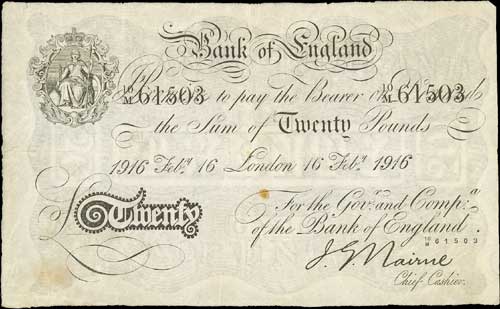 Bank of England
61503 to pay the Bearer on 61503
the Sum of Twenty Pounds
1916 Feby. 16 London 16 Feby. 1916
Twenty
For the Govr. and Compa.
of the Bank of England.
61503
J. G. Nairne
Chief Cashier.